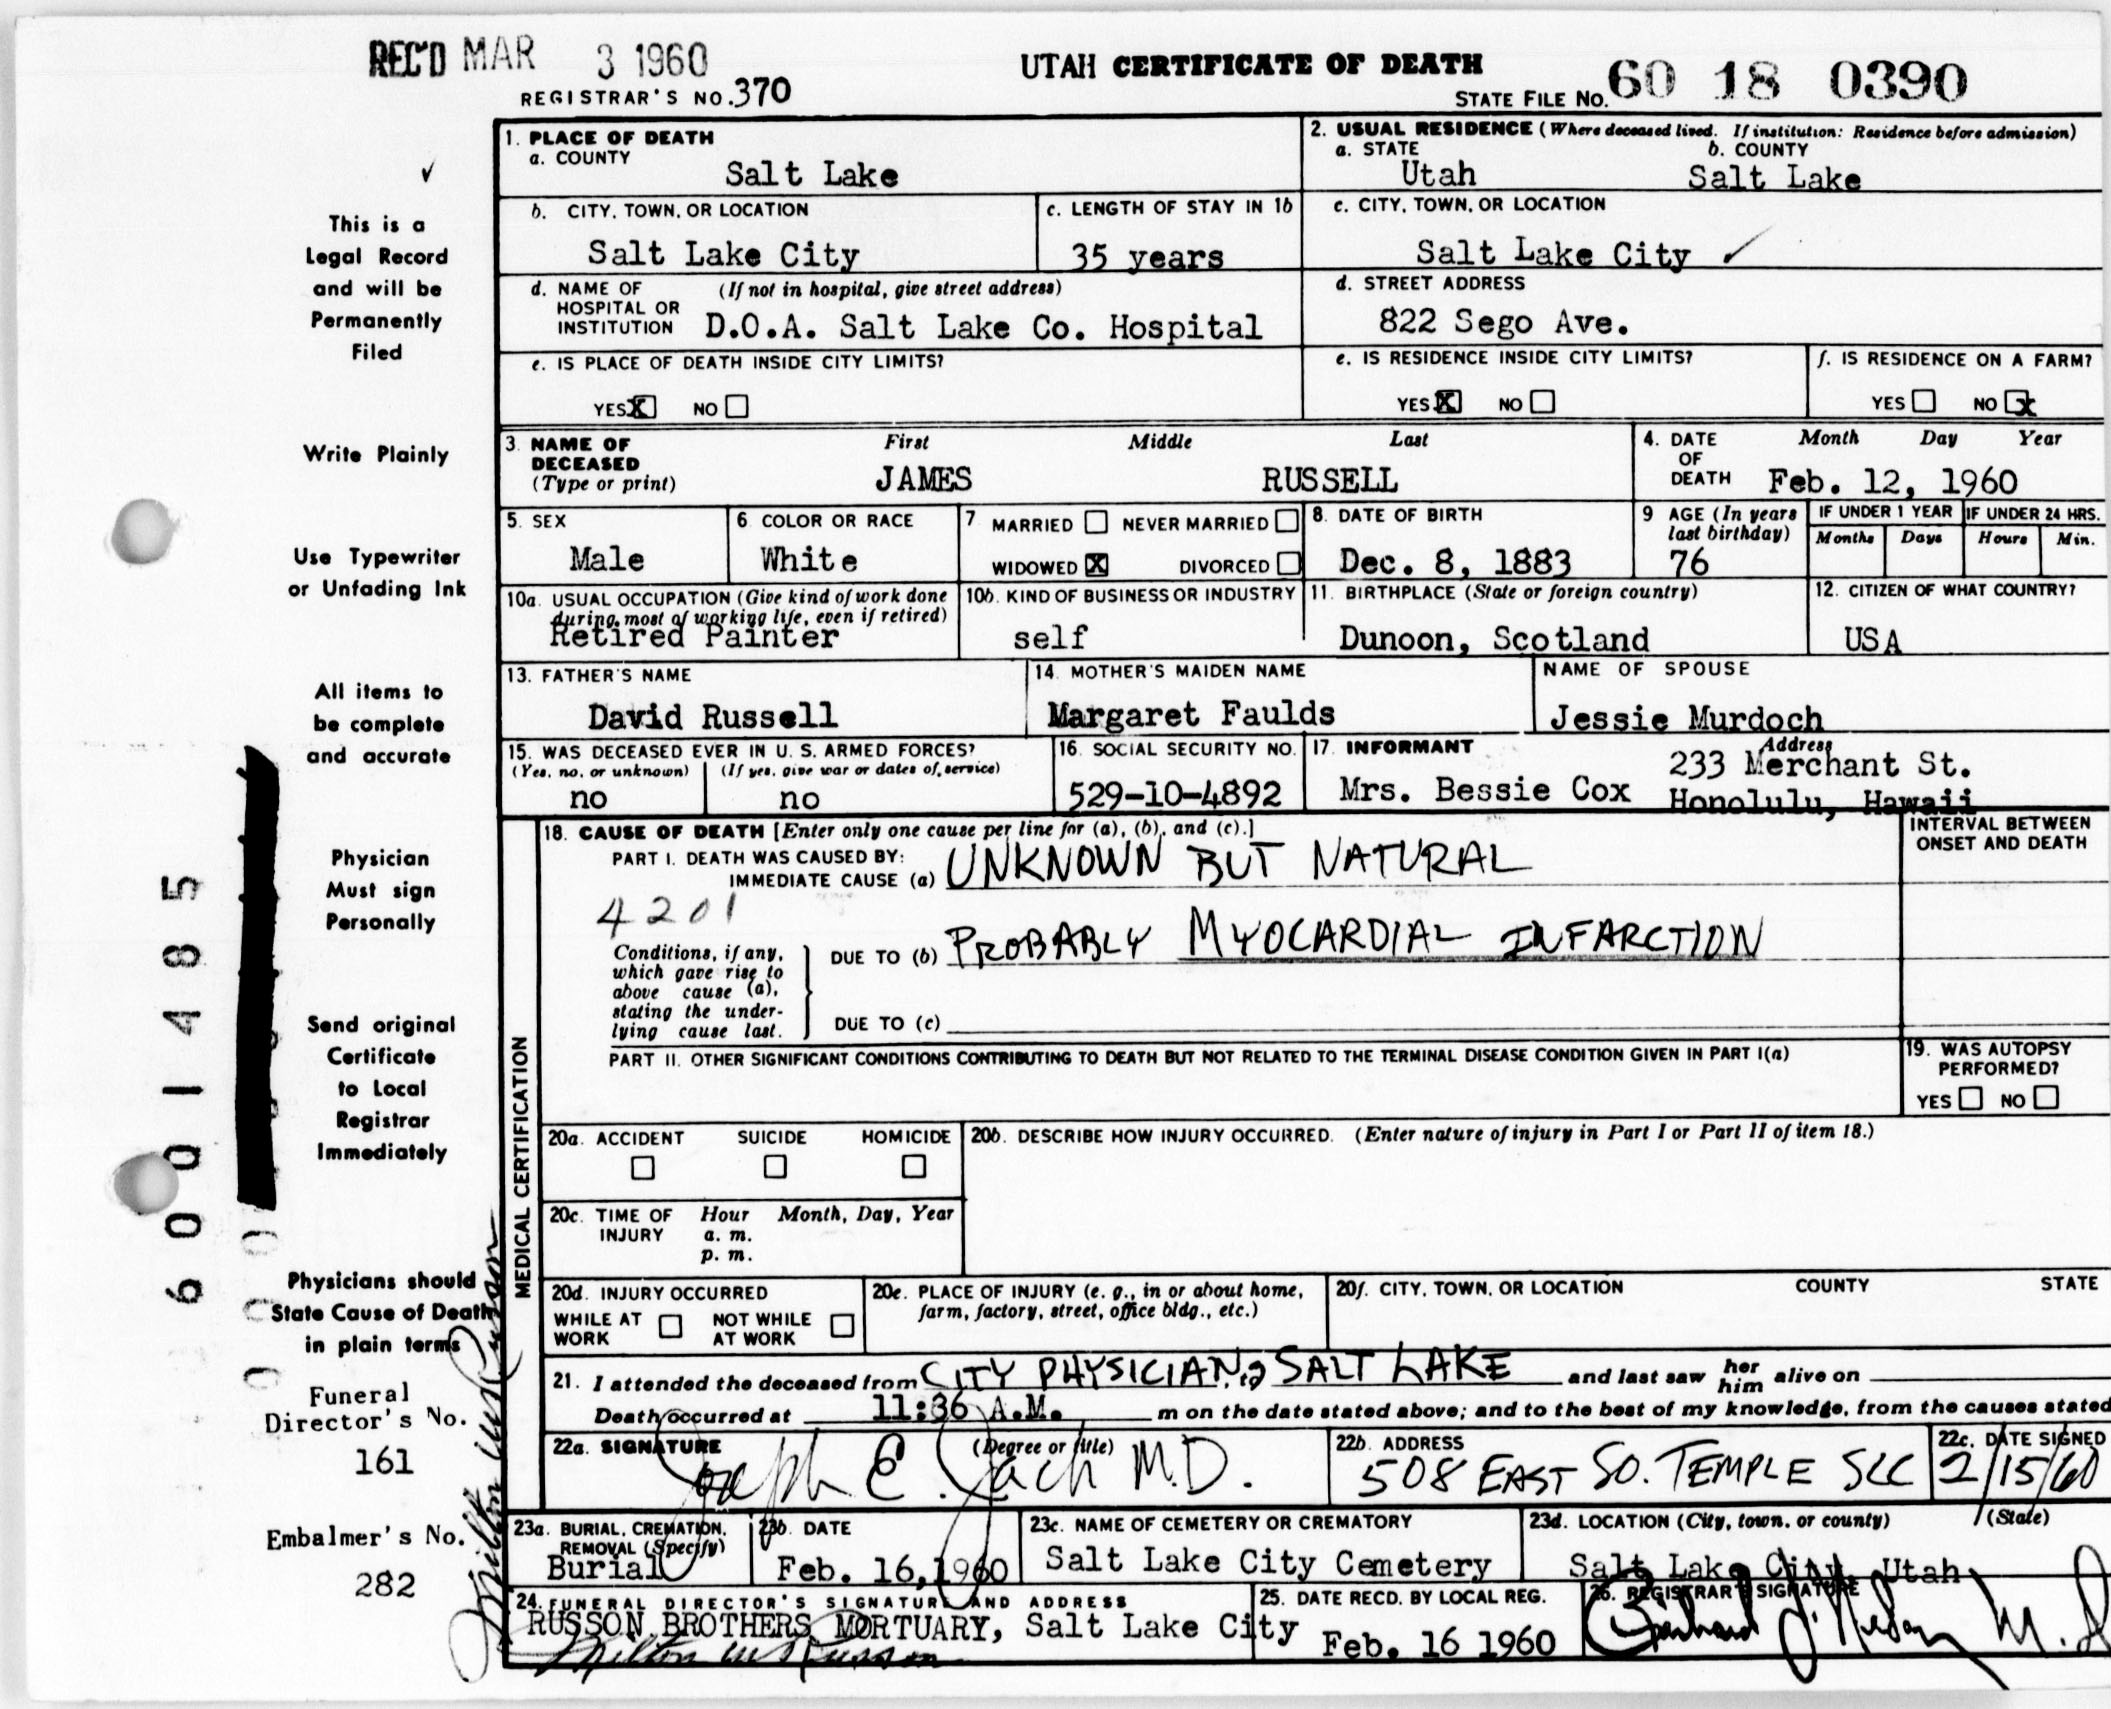 REC'D MAR 3 1960
REGISTRAR'S NO. 370
UTAH CERTIFICATE OF DEATH
STATE FILE NO. 60 18 0390
This is a
Legal Record
and will be
Permanently
Filed
Write Plainly
Use Typewriter
or Unfading Ink
All items to
be complete
and accurate
Physician
Must sign
Personally
Send original
Certificate
to Local
Registrar
Immediately
Physicians should
State Cause of Death
in plain terms
Funeral
Director's No.
161
Embalmer's No.
282
6001485
Milton W Russon
1. PLACE OF DEATH
a. COUNTY
Salt Lake
2. USUAL RESIDENCE (Where deceased lived. If institution: Residence before admission)
a. STATE b. COUNTY
Utah Salt Lake
b. CITY, TOWN, OR LOCATION
Salt Lake City
c. LENGTH OF STAY IN 1b
35 years
c. CITY, TOWN, OR LOCATION
Salt Lake City
d. NAME OF HOSPITAL OR INSTITUTION (If not in hospital, give street address)
D.O.A. Salt Lake Co. Hospital
d. STREET ADDRESS
822 Sego Ave.
e. IS PLACE OF DEATH INSIDE CITY LIMITS?
YES X NO
e. IS RESIDENCE INSIDE CITY LIMITS?
YES X NO
f. IS RESIDENCE ON A FARM?
YES NO X
3. NAME OF DECEASED (Type or print)
First Middle Last
JAMES RUSSELL
4. DATE OF DEATH
Month Day Year
Feb. 12, 1960
5. SEX
Male
6 COLOR OR RACE
White
7 MARRIED NEVER MARRIED
WIDOWED X DIVORCED
8. DATE OF BIRTH
Dec. 8, 1883
9 AGE (In years last birthday)
76
IF UNDER 1 YEAR
Months Days
IF UNDER 24 HRS.
Hours Min.
10a. USUAL OCCUPATION (Give kind of work done during most of working life, even if retired)
Retired Painter
10b. KIND OF BUSINESS OR INDUSTRY
self
11. BIRTHPLACE (State or foreign country)
Dunoon, Scotland
12. CITIZEN OF WHAT COUNTRY?
USA
13. FATHER'S NAME
David Russell
14. MOTHER'S MAIDEN NAME
Margaret Faulds
NAME OF SPOUSE
Jessie Murdoch
15. WAS DECEASED EVER IN U. S. ARMED FORCES?
(Yes, no, or unknown) (If yes, give war or dates of service)
no no
16. SOCIAL SECURITY NO.
529-10-4892
17. INFORMANT Address
Mrs. Bessie Cox 233 Merchant St.
Honolulu, Hawaii
MEDICAL CERTIFICATION
18. CAUSE OF DEATH [Enter only one cause per line for (a), (b), and (c).]
INTERVAL BETWEEN ONSET AND DEATH
PART I. DEATH WAS CAUSED BY:
IMMEDIATE CAUSE (a) UNKNOWN BUT NATURAL
4201
Conditions, if any,
which gave rise to
above cause (a),
stating the under-
lying cause last.
DUE TO (b) PROBABLY MYOCARDIAL INFARCTION
DUE TO (c)
PART II. OTHER SIGNIFICANT CONDITIONS CONTRIBUTING TO DEATH BUT NOT RELATED TO THE TERMINAL DISEASE CONDITION GIVEN IN PART I(a)
19. WAS AUTOPSY PERFORMED?
YES NO
20a. ACCIDENT SUICIDE HOMICIDE
20b. DESCRIBE HOW INJURY OCCURRED. (Enter nature of injury in Part I or Part II of item 18.)
20c. TIME OF INJURY Hour Month, Day, Year
a. m.
p. m.
20d. INJURY OCCURRED
WHILE AT WORK NOT WHILE AT WORK
20e. PLACE OF INJURY (e. g., in or about home, farm, factory, street, office bldg., etc.)
20f. CITY, TOWN, OR LOCATION COUNTY STATE
21. I attended the deceased from CITY PHYSICIAN, SALT LAKE and last saw her him alive on
Death occurred at 11:36 A.M. m on the date stated above; and to the best of my knowledge, from the causes stated
22a. SIGNATURE (Degree or title)
Joseph E. Jach M.D.
22b. ADDRESS
508 EAST SO. TEMPLE SLC
22c. DATE SIGNED
2/15/60
23a. BURIAL, CREMATION, REMOVAL (Specify)
Burial
23b. DATE
Feb. 16, 1960
23c. NAME OF CEMETERY OR CREMATORY
Salt Lake City Cemetery
23d. LOCATION (City, town, or county) (State)
Salt Lake City, Utah
24. FUNERAL DIRECTOR'S SIGNATURE AND ADDRESS
RUSSON BROTHERS MORTUARY, Salt Lake City
Milton W Russon
25. DATE RECD. BY LOCAL REG.
Feb. 16 1960
26. REGISTRAR'S SIGNATURE